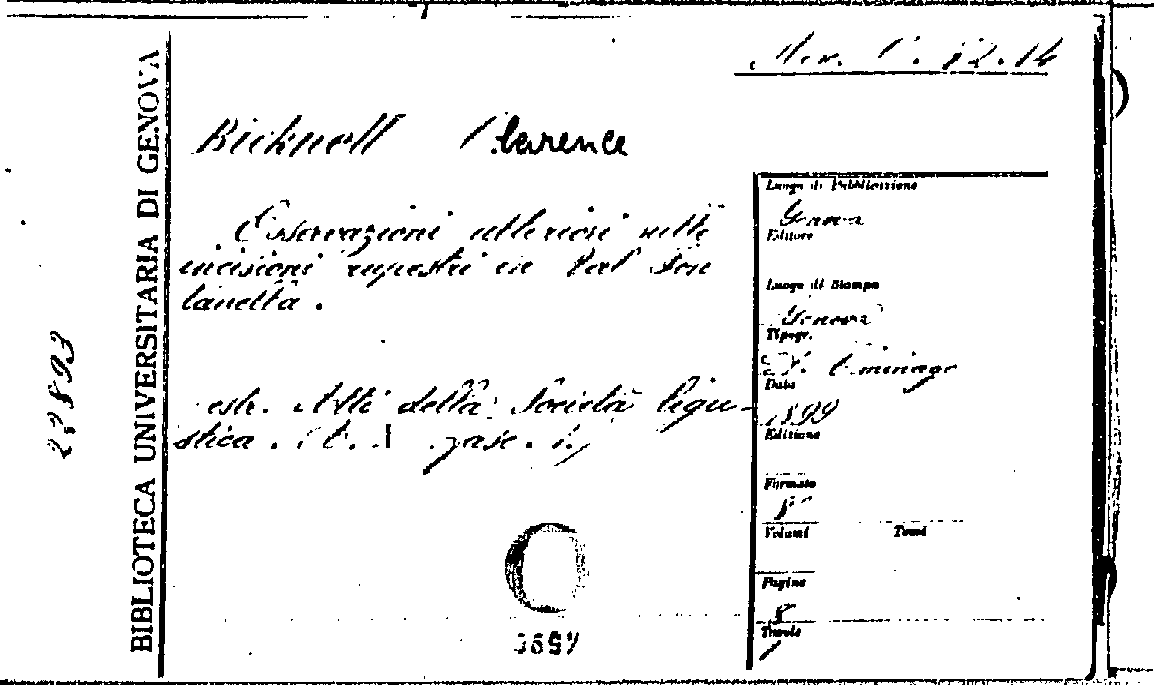 12.14
Bicknell Clarence
Osservazioni ulteriori sulle
incisioni rupestri in Val Fon
tanetta.
estr. Atti della Società ligu-
stica. fasc.
Luogo di Pubblicazione
Genova
Editore
Luogo di Stampa
Genova
Tipogr.
Ciminago
Data
1899
Edizione
Formato
8°
Volumi Tomi
Pagine
8
Tavole
BIBLIOTECA UNIVERSITARIA DI GENOVA
22893